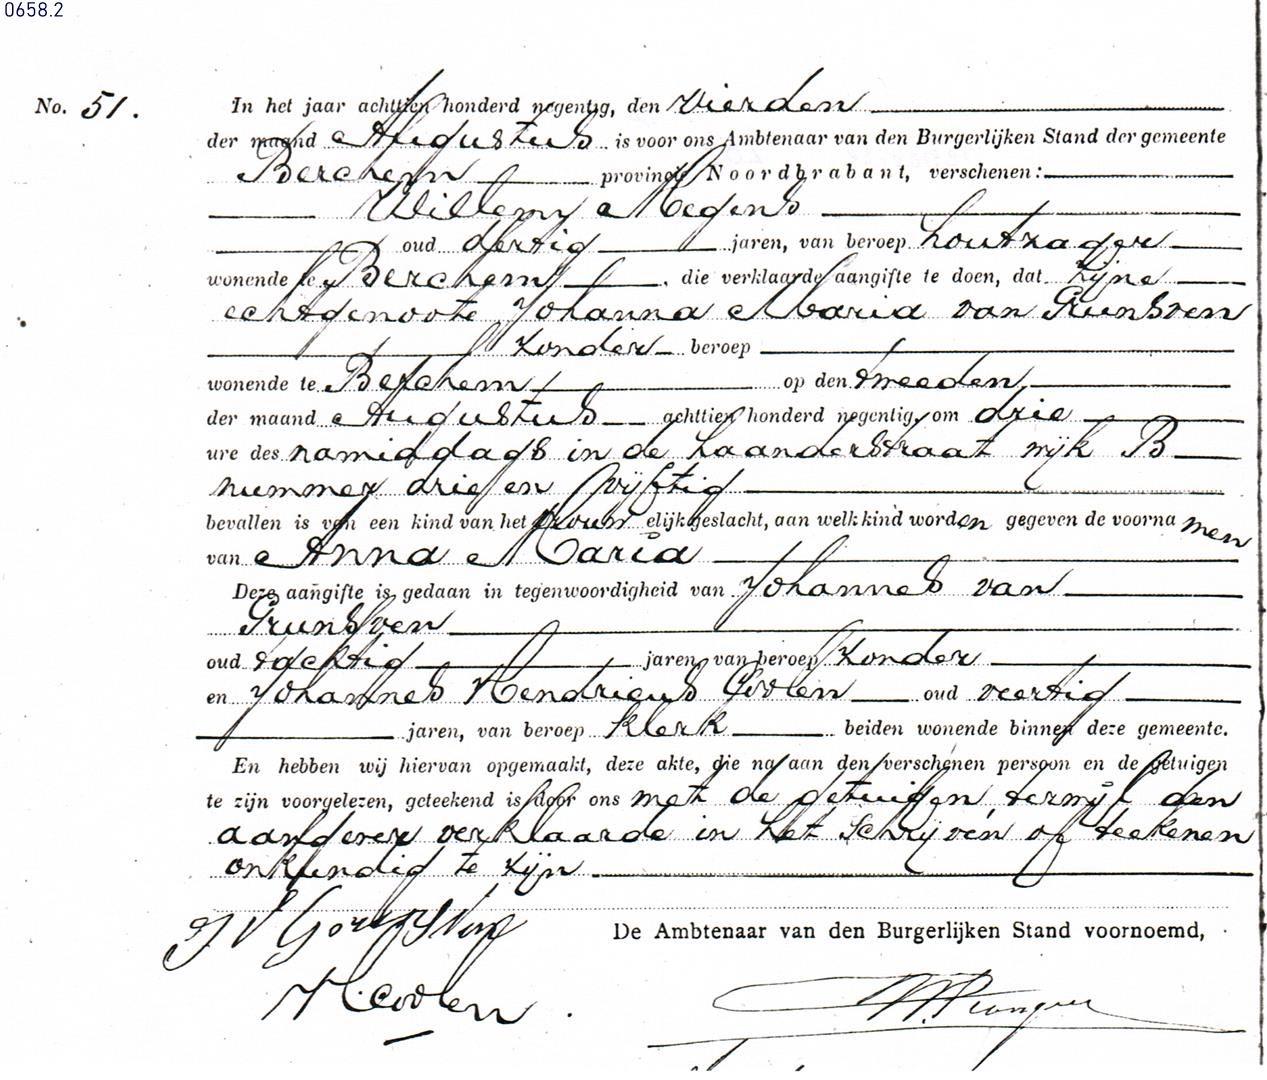 0658.2
No. 51. In het jaar achttien honderd negentig, den vierden
der maand Augustus is voor ons Ambtenaar van den Burgerlijken Stand der gemeente
Berchem provincie Noordbrabant, verschenen:
Willem Megens
oud dertig jaren, van beroep houtzager
wonende te Berchem, die verklaarde aangifte te doen, dat zijne
echtgenoote Johanna Maria van Grunsven
zonder beroep
wonende te Berchem op den tweeden
der maand Augustus achttien honderd negentig, om drie
ure des namiddags in de Laanderstraat wijk B
nummer drie en vijftig
bevallen is van een kind van het vrouwelijk geslacht, aan welk kind worden gegeven de voornamen
van Anna Maria
Deze aangifte is gedaan in tegenwoordigheid van Johannes van
Grunsven
oud tachtig jaren, van beroep zonder
en Johannes Hendricus Coolen oud veertig
jaren, van beroep klerk beiden wonende binnen deze gemeente.
En hebben wij hiervan opgemaakt, deze akte, die na aan den verschenen persoon en de getuigen
te zijn voorgelezen, geteekend is door ons met de getuigen, termijl den
aangever verklaarde in het schrijven of teekenen
onkundig te zijn
J V
De Ambtenaar van den Burgerlijken Stand voornoemd,
H. Coolen.